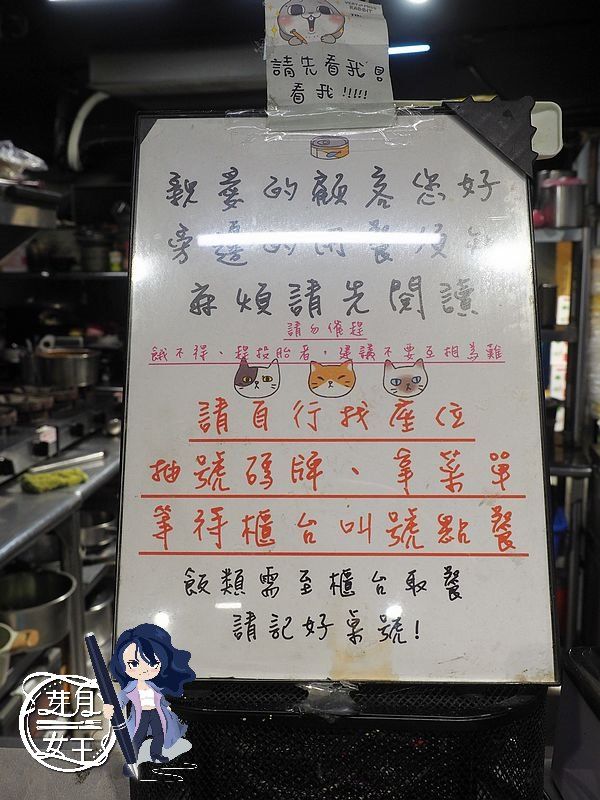 請先看我
看我!!!!!
親愛的顧客您好
旁邊的用餐須知
麻煩請先閱讀
請勿催趕
餓不得、趕投胎者,建議不要互相為難
請自行找座位
抽號碼牌、拿菜單
等待櫃台叫號點餐
飯類需至櫃台取餐
請記好桌號!
芽月
女王